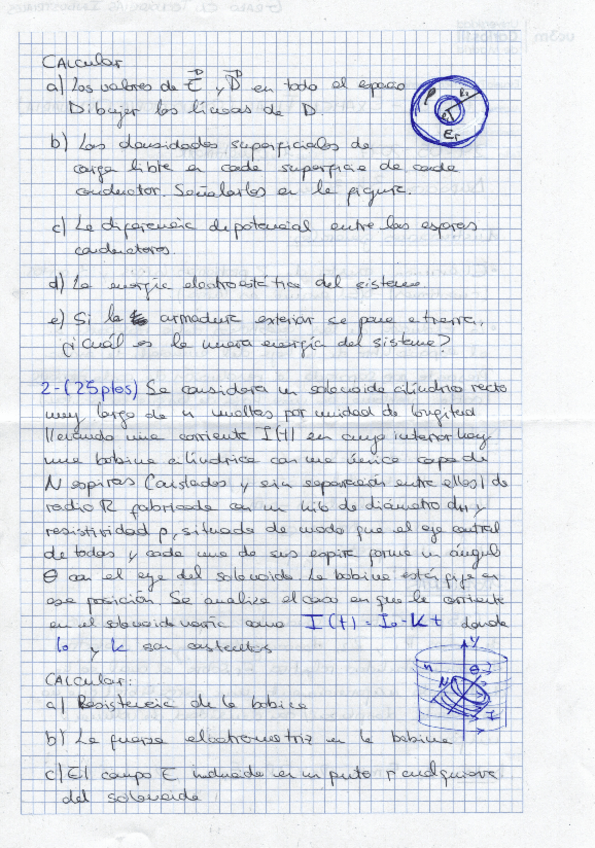 CALcular
a) Los valores de E y D en todo el espacio
Dibujar las líneas de D.
b) Las densidades superficiales de
carga libre en cada superficie de cada
conductor. Señalarlos en la figura.
c) La diferencia de potencial entre las esferas
conductoras.
d) La energía electrostática del sistema.
e) Si la armadura exterior se pone a tierra,
¿Cuál es la nueva energía del sistema?
2-(25ptos) Se considera un solenoide cilíndrico recto
muy largo de n vueltas por unidad de longitud
llevando una corriente I(t) en cuyo interior hay
una bobina cilíndrica con una única capa de
N espiras (aislados y sin separación entre ellos) de
radio R fabricada con un hilo de diámetro dH y
resistividad ρ, situada de modo que el eje central
de todas y cada una de sus espira forma un ángulo
θ con el eje del solenoide. La bobina está fija en
esa posición. Se analiza el caso en que la corriente
en el solenoide varía como I(t) = I₀ - Kt donde
I₀ y k son constantes
CALcular:
a) Resistencia de la bobina
b) La fuerza electromotriz en la bobina
c) El campo E inducido en un punto P cualquiera
del solenoide